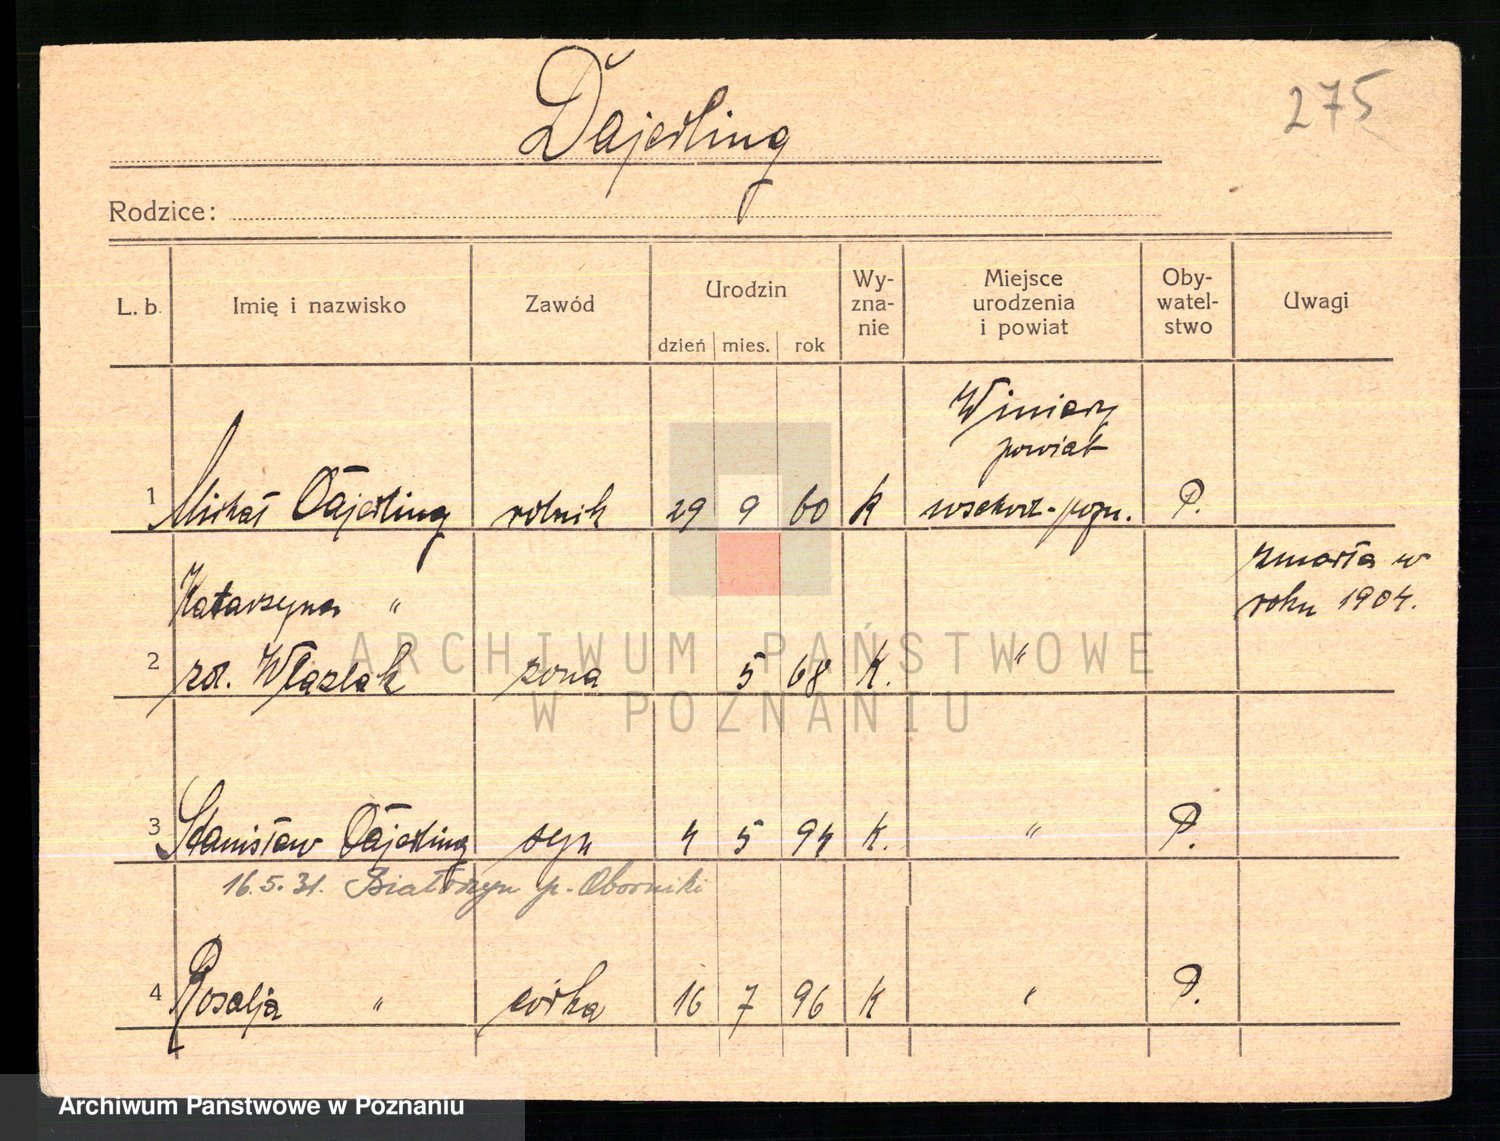 Dajerling
275
Rodzice:
L. b. Imię i nazwisko Zawód Urodzin dzień mies. rok Wy-zna-nie Miejsce urodzenia i powiat Oby-watel-stwo Uwagi
Winiary
powiat
1 Michał Dajerling rolnik 29 9 60 K wschod-pozn. P.
zmarła w
Katarzyna " roku 1904.
2 zd. Wlazlak zona 5 68 K. "
3 Stanisław Dajerling syn 4 5 94 K. " P.
16.5.31. p. Oborniki
4 Rosalja " córka 16 7 96 K " P.
ARCHIWUM PAŃSTWOWE
W POZNANIU
Archiwum Państwowe w Poznaniu